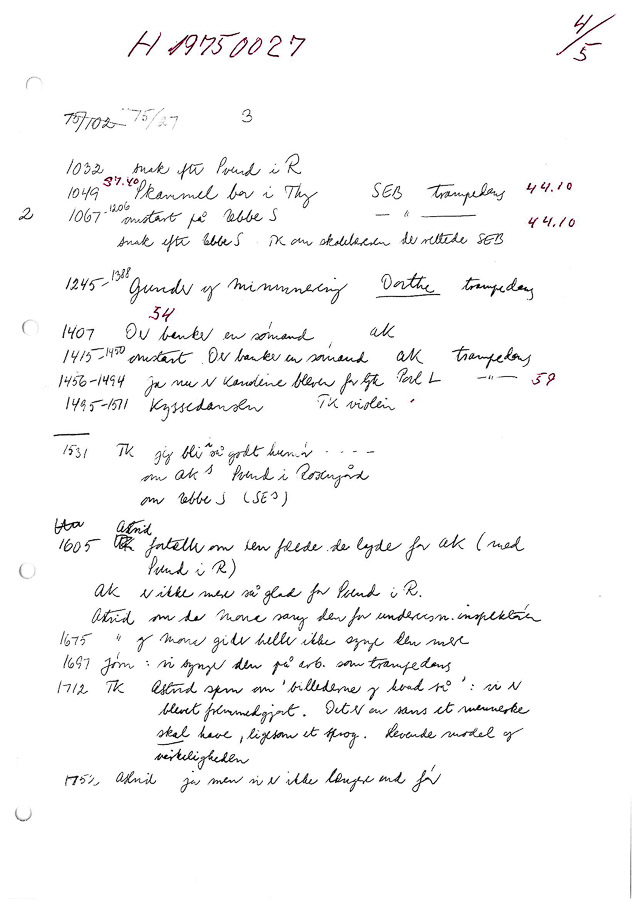 H 19750027
4/5
75/102 75/27 3
1032 snak efter Svend i R
37.40
1049 Skammel bor i Thy SEB trampedans 44.10
2 1067-1206 omstart på Ebbe S — " — 44.10
snak efter Ebbe S TK om skolelæreren der rettede SEB
1245-1388 Gunder og Dorthe trampedans
54
1407 Der banker en sømand AK
1415-1450 omstart. Der banker en sømand AK trampedans
1456-1494 ja nu er blever for Poul L — " — 59
1495-1571 Kyssedansen TK violin
1531 TK jeg bli'r så godt humør - - - -
om AK's Svend i Rosengård
om Ebbe S (SEB)
Astrid
1605 fortæller om den glæde de lyde for AK (med
Svend i R)
AK er ikke mere så glad for Svend i R.
Astrid om da Mone sang den for undervisn.inspektøren
1675 " og Mone gider heller ikke synge den mere
1697 Jørn : vi synger den på arb. som trampedans
1712 TK Astrid spm om 'billederne og hvad så' : vi er
blevet fremmedgjort. Det er en sans et menneske
skal have, ligesom et sprog. Levende model af
virkeligheden
Astrid ja men vi er ikke længere end før